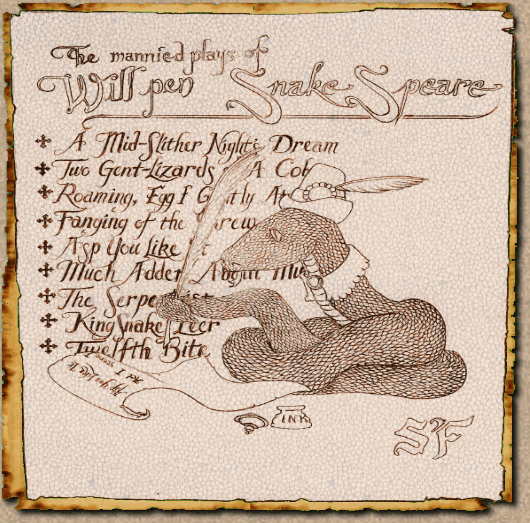 The mannied plays of
Will pen Snake Speare
A Mid-Slither Night's Dream
Two Gent-Lizards A
Roaming, Egg I
Fanging of the
Asp You Like
Much Adder About
The
King Snake Leer
Twelfth Bite
INK
SF